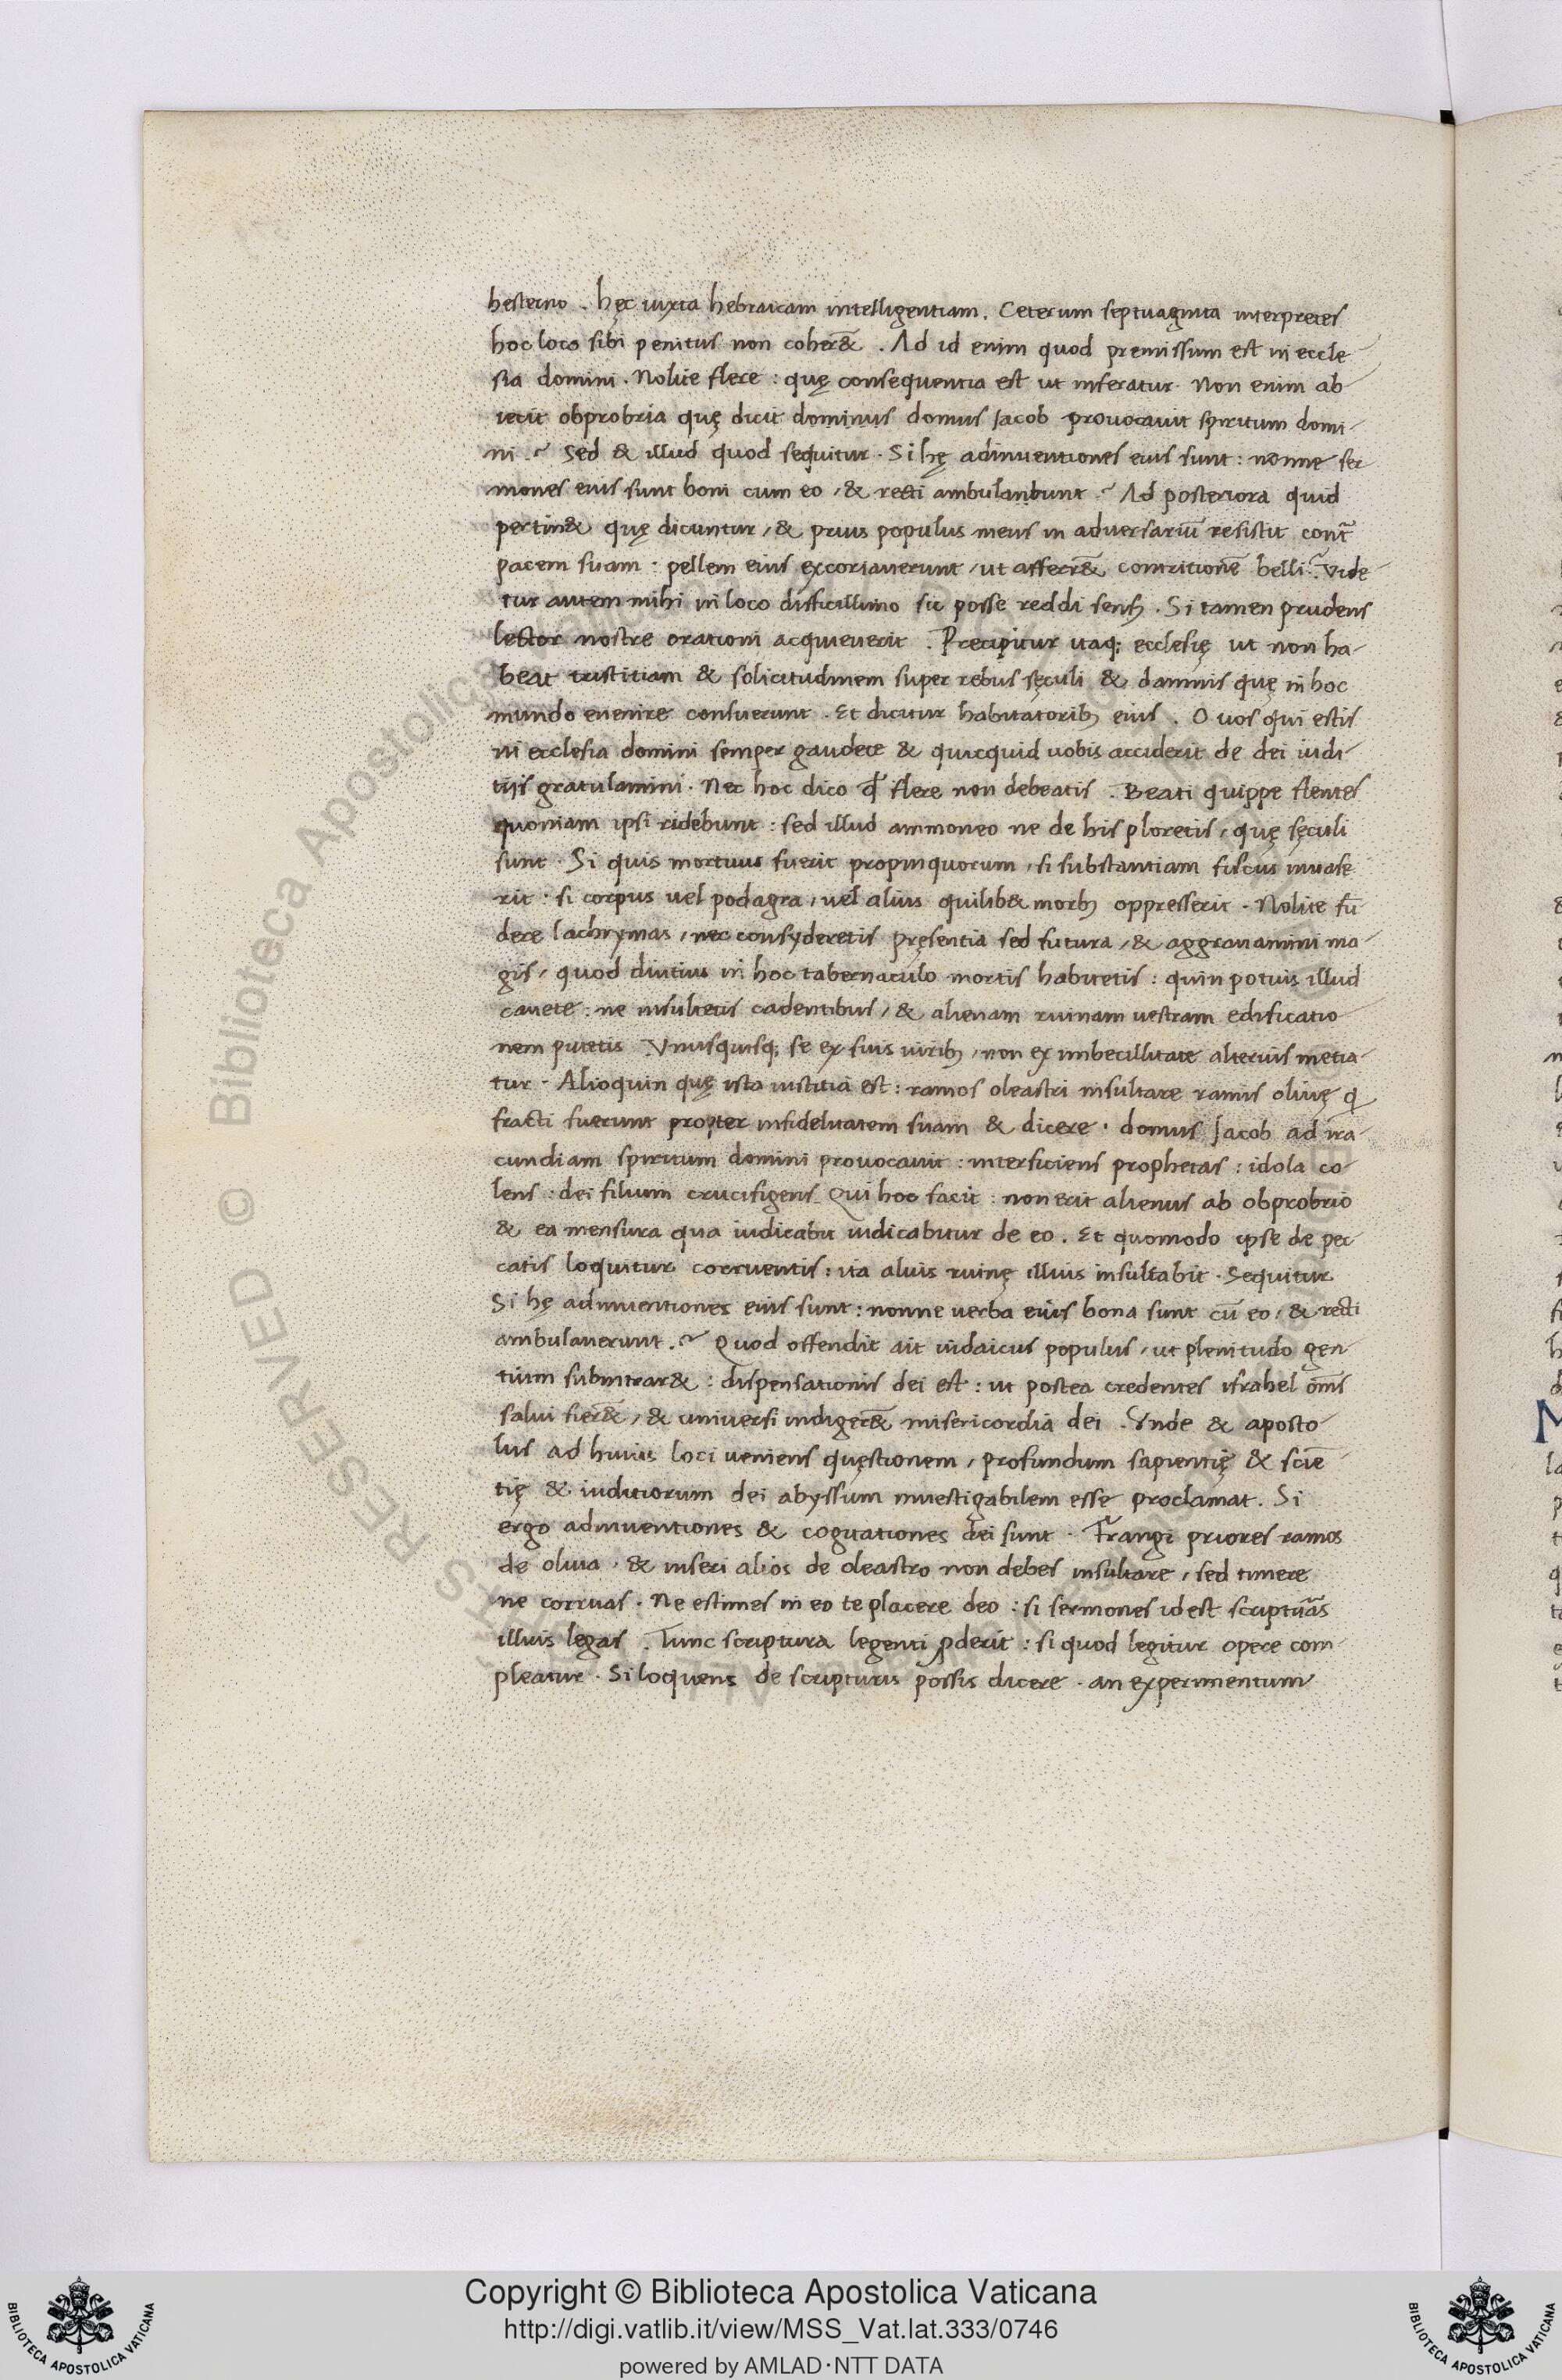 hesterno . hęc iuxta hebraicam intelligentiam . Ceterum septuaginta interpretes
hoc loco sibi penitus non coher&̄ . Ad id enim quod premissum est in eccle
sia domini . Nolite flere : quę consequentia est ut inferatur . Non enim ab
iecit obprobria quę dicit dominus domus Jacob provocauit spiritum domi-
ni . ~ Sed & illud quod sequitur . Si hę adinuentiones eius sunt : nonne ser
mones eius sunt boni cum eo , & recti ambulanbunt ~ Ad posteriora quid
pertin& quę dicuntur , & prius populus meus in aduersariū resistit cont̄
pacem suam : pellem eius excoriauerunt , ut afferr&̄ contritionē belli ~ Vide
tur autem mihi in loco difficillimo sic posse reddi senꝫ . Si tamen prudens
lector nostre orationi acquieuerit . Precipitur itaq; ecclesię ut non ha-
beat tristitiam & solicitudinem super rebus sęculi & damnis quę in hoc
mundo euenire consuerunt . Et dicitur habitatoribꝫ eius . O uos qui estis
in ecclesia domini semper gaudete & quicquid uobis acciderit de dei iudi-
tiis gratulamini . Nec hoc dico ꝙ flere non debeatis . Beati quippe flentes
quoniam ipsi ridebunt : sed illud ammoneo ne de his ploretis , quę sęculi
sunt . Si quis mortuus fuerit propinquorum , si substantiam fiscus inuase
rit : si corpus uel podagra , uel alius quilib& morbꝫ oppresserit . Nolite fū
dere lachrymas , nec consyderetis pręsentia sed futura , & aggrauamini ma-
gis , quod diutius in hoc tabernaculo mortis habitetis : quin potius illud
cauete : ne insultetis cadentibus , & alienam ruinam uestram edificatio
nem putetis . Vnusquisq; se ex suis uiribꝫ , non ex imbecillitate alterius metia-
tur . Alioquin quę ista iustitia est : ramos oleastri insultare ramis oliuę q
fracti fuerunt propter infidelitatem suam & dicere . domus Jacob ad ira-
cundiam spiritum domini prouocauit : interficiens prophetas : idola co-
lens : dei filium crucifigens . Qui hoc facit : non erit alienus ab obprobrio
& ea mensura qua iudicabit iudicabitur de eo . Et quomodo ipse de pec-
catis loquitur corruentis : ita alius ruinę illius insultabit . Sequitur
Si hę adinuentiones eius sunt : nonne uerba eius bona sunt cū eo , & recti
ambulauerunt . ~ Quod offendit ait iudaicus populus , ut plenitudo gen-
tium subintrar& : dispensationis dei est : ut postea credentes israhel om̄s
salui fier&̄ , & universi indiger&̄ misericordia dei . Vnde & aposto-
lus ad huius loci ueniens quęstionem , profundum sapientię & sciē-
tię & iuditiorum dei abyssum inuestigabilem esse proclamat . Si
ergo adinuentiones & cogitationes dei sunt . Frangi priores ramos
de oliua , & inseri alios de oleastro non debes insultare , sed timere
ne corruas . Ne estimes in eo te placere deo : si sermones id est scriptur̄as
illius legas . Tunc scriptura legenti ꝓderit : si quod legitur opere com-
pleatur . Si loquens de scripturis possis dicere . an experimentum
Copyright © Biblioteca Apostolica Vaticana
http://digi.vatlib.it/view/MSS_Vat.lat.333/0746
powered by AMLAD·NTT DATA